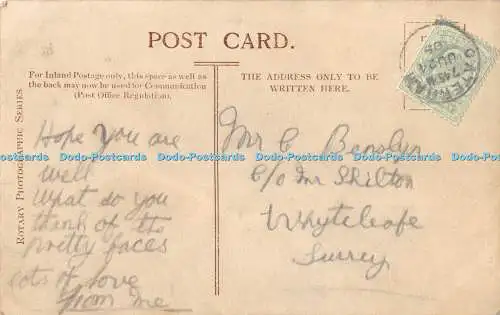 POST CARD.
For Inland Postage only, this space as well as
the back may now be used for Communication
(Post Office Regulation).
THE ADDRESS ONLY TO BE
WRITTEN HERE.
ROTARY PHOTOGRAPHIC SERIES.
CATERHAM
Hope you are
well
What do you
think of the
pretty faces
lots of love
from me
Mr C
C/o Mr Skilton
Whyteleafe
Surrey
Dodo-Postcards Dodo-Postcards Dodo-Postcards Dodo-Postcards Dodo-Postcards